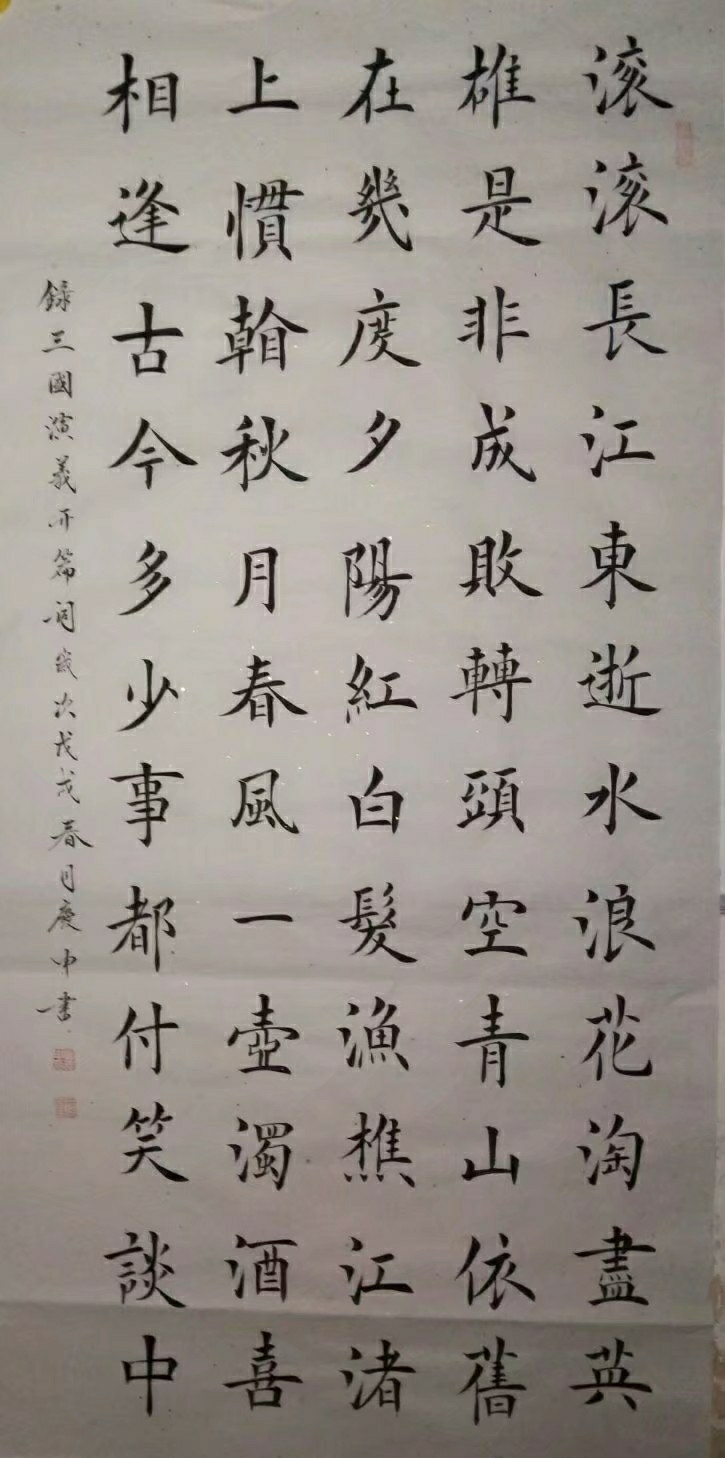 滚滚長江東逝水浪花淘盡英
雄是非成敗轉頭空青山依舊
在幾度夕陽紅白髮漁樵江渚
上慣看秋月春風一壺濁酒喜
相逢古今多少事都付笑談中
錄三國演義开篇词歲次戊戌春月庚中書